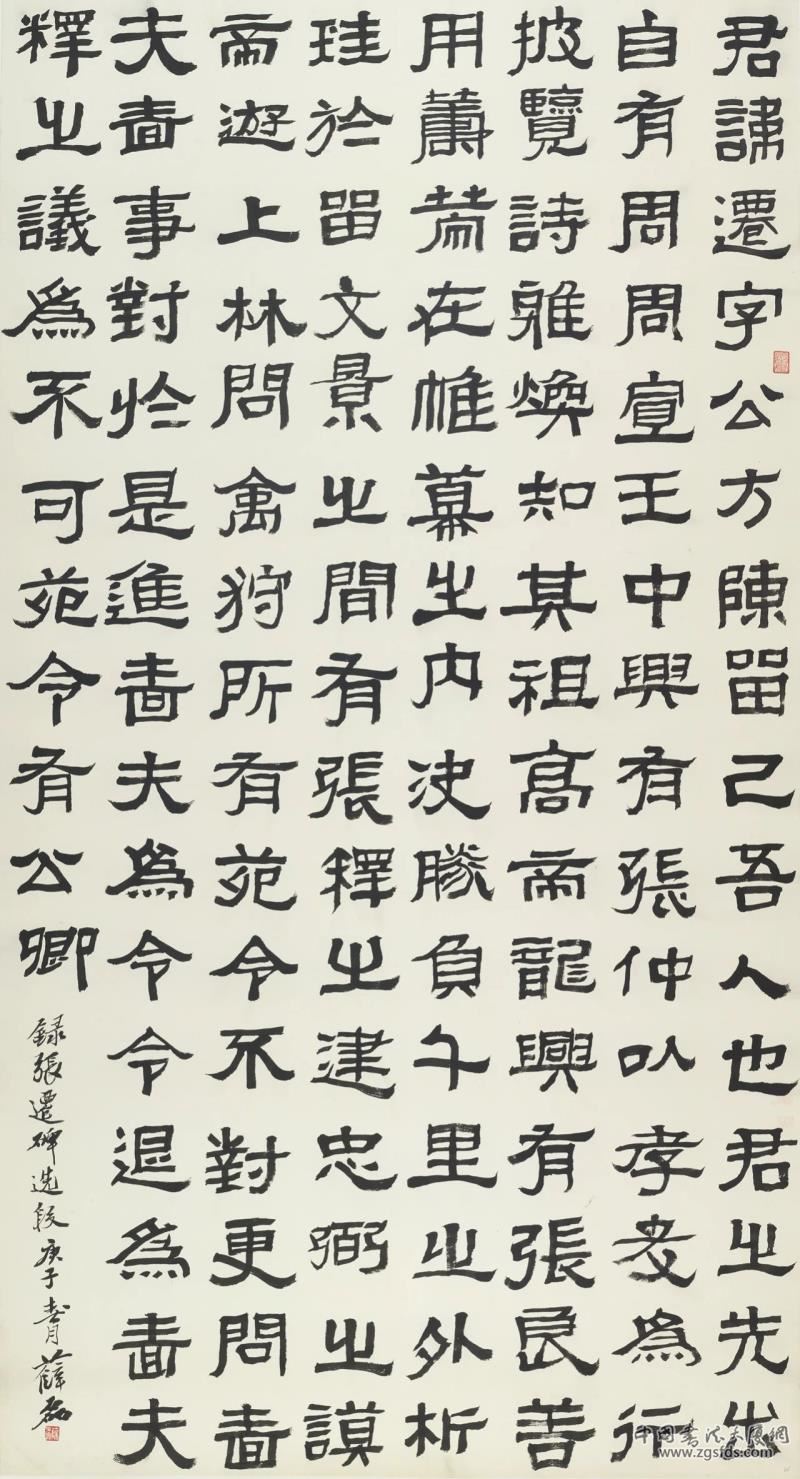 君諱遷字公方陳留己吾人也君之先出
自有周周宣王中興有張仲以孝友為行
披覽詩雅煥知其祖高帝龍興有張良善
用籌策在帷幕之內決勝負千里之外析
珪於留文景之間有張釋之建忠弼之謨
帝遊上林問禽狩所有苑令不對更問嗇
夫嗇事對於是進嗇夫為令令退為嗇夫
釋之議為不可苑令有公卿
録張遷碑选段庚子薛磊
www.zgsfds.com